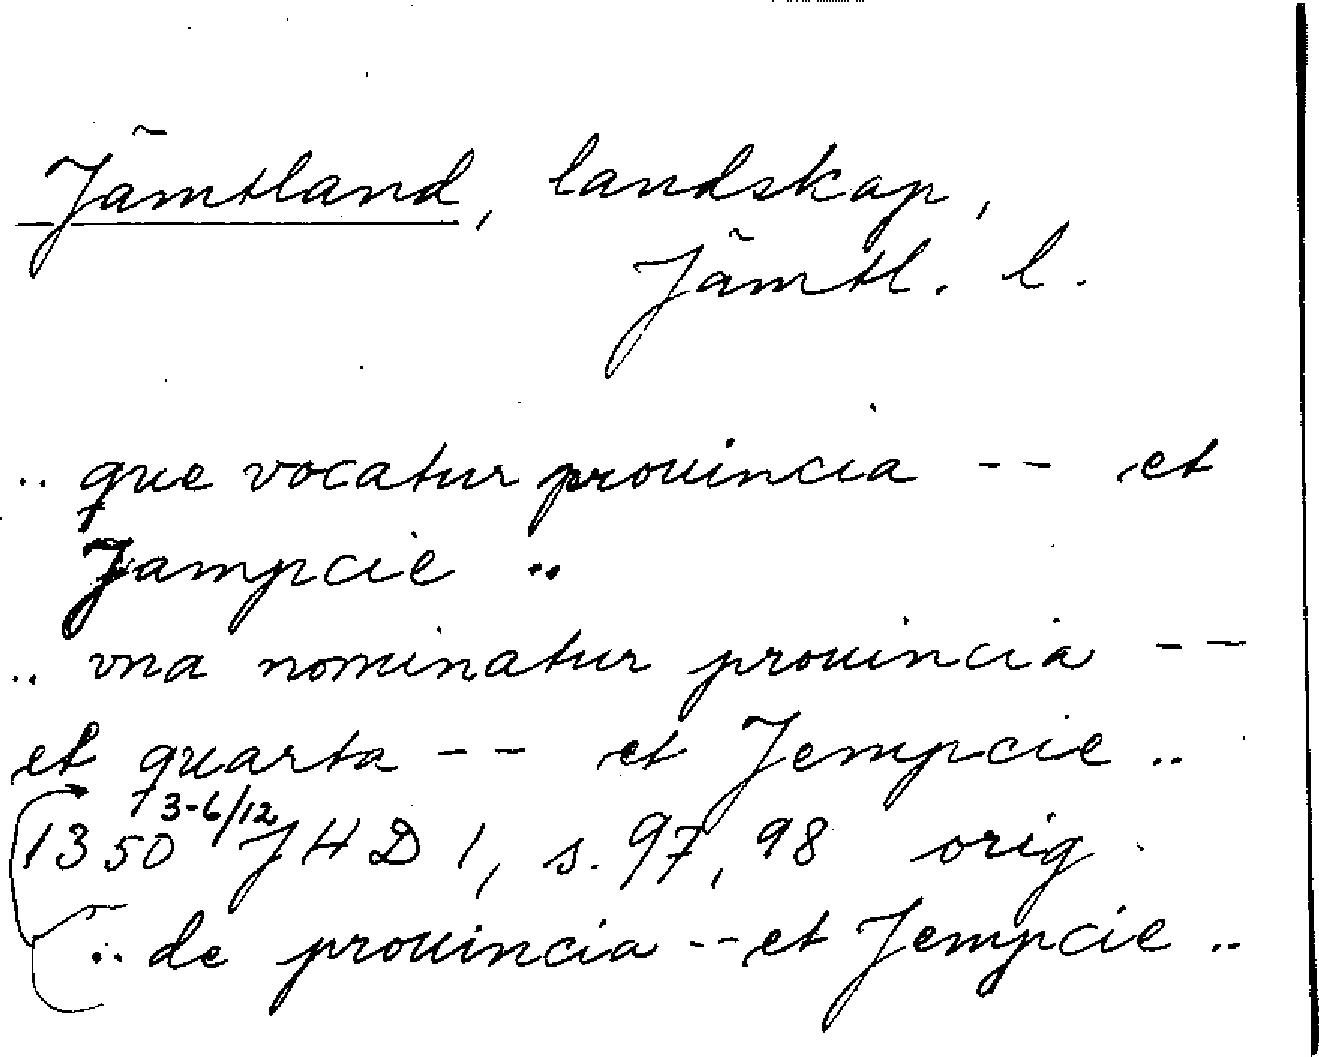 Jämtland, landskap,
Jämtl. l.
.. que vocatur prouincia -- et
Jampcie ..
.. vna nominatur prouincia --
et quarta -- et Jempcie ..
1350 3-6/12 JHD 1, s. 97, 98 orig.
.. de prouincia -- et Jempcie ..